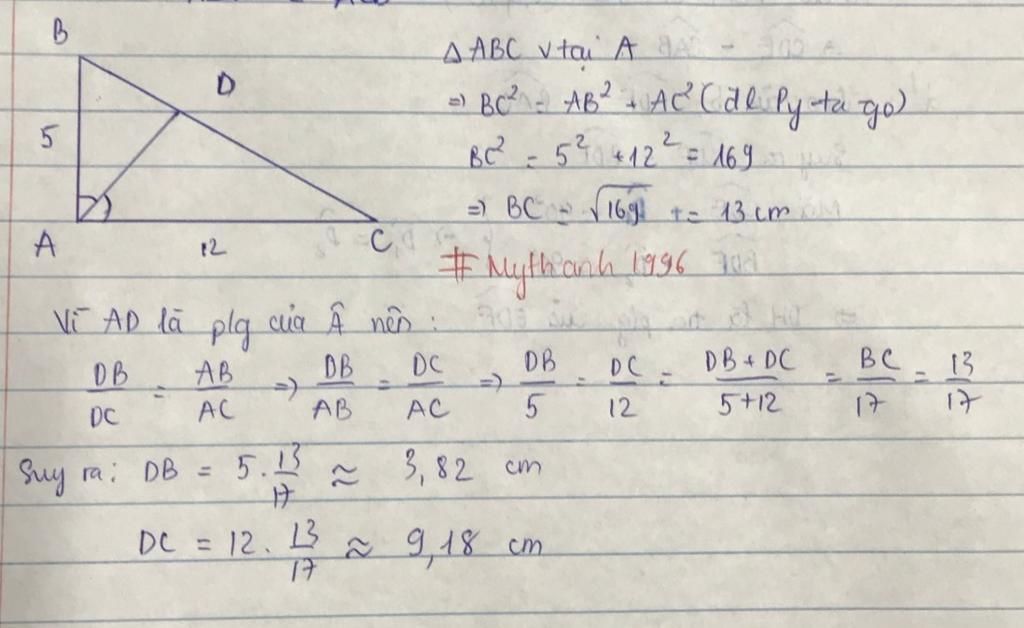 B
D
5
A
12
C
Δ ABC v tại A
=> BC² = AB² + AC² (đl Py-ta-go)
BC² = 5² + 12² = 169
=> BC = √169 = 13 cm
# Mythanh 1996
Vì AD là plg của Â nên:
DB/DC = AB/AC => DB/AB = DC/AC => DB/5 = DC/12 = DB+DC/5+12 = BC/17 = 13/17
Suy ra: DB = 5 . 13/17 ≈ 3,82 cm
DC = 12 . 13/17 ≈ 9,18 cm